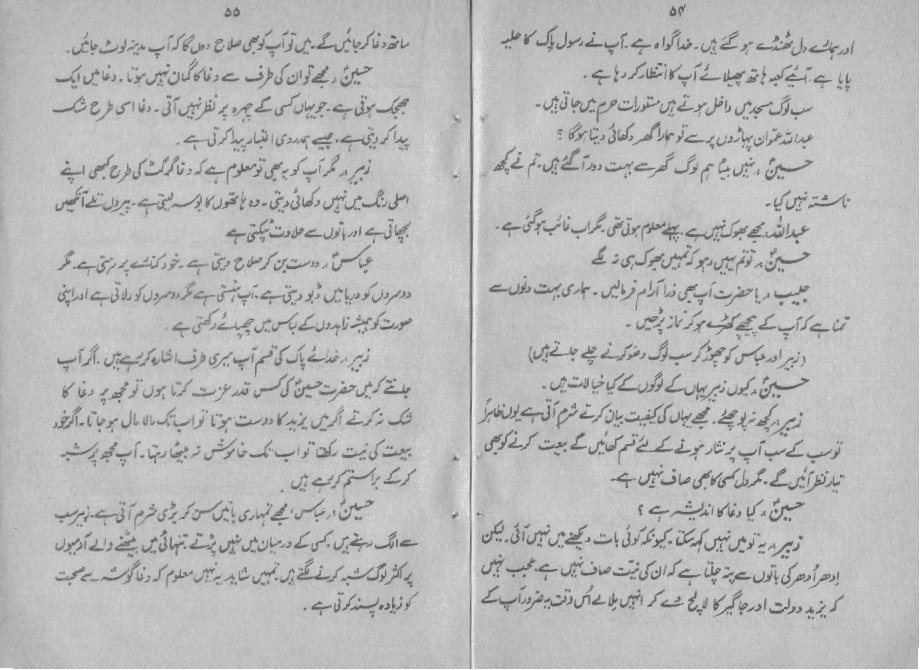 ۵۴
اور ہمارے دل ٹھنڈے ہو گئے ہیں۔ خدا گواہ ہے۔ آپ نے رسول پاک کا حلیہ
پایا ہے۔ آئیے کعبہ ہاتھ پھیلائے آپ کا انتظار کر رہا ہے۔
سب لوگ مسجد میں داخل ہوتے ہیں مستورات حرم میں جاتی ہیں۔
عبداللہ عموان پہاڑوں پر سے تو ہمارا گھر دکھائی دیتا ہوگا؟
حسینؑ۔ نہیں بیٹا ہم لوگ گھر سے بہت دور آ گئے ہیں۔ تم نے کچھ
ناشتہ نہیں کیا۔
عبداللہ۔ مجھے بھوک نہیں ہے۔ پہلے معلوم ہوتی تھی۔ مگر اب غائب ہو گئی ہے۔
حسینؑ۔ تو تم یہیں رہو کہ تمہیں بھوک ہی نہ لگے
حبیب۔ یا حضرت آپ بھی ذرا آرام فرمالیں۔ ہماری بہت دنوں سے
تمنا ہے کہ آپ کے پیچھے کھڑے ہو کر نماز پڑھیں۔
(زبیر اور عباس کو چھوڑ کر سب لوگ وضو کرنے چلے جاتے ہیں)
حسینؑ۔ کیوں زبیر یہاں کے لوگوں کے کیا خیالات ہیں۔
زبیر۔ کچھ نہ پوچھئے۔ مجھے یہاں کی کیفیت بیان کرتے شرم آتی ہے یوں ظاہراً
تو سب کے سب آپ پر نثار ہونے کے لئے قسم کھائیں گے بیعت کرنے کو بھی
تیار نظر آئیں گے۔ مگر دل کسی کا بھی صاف نہیں ہے۔
حسینؑ۔ کیا دغا کا اندیشہ ہے؟
زبیر۔ یہ تو میں نہیں کہہ سکتا۔ کیونکہ کوئی بات دیکھنے میں نہیں آئی۔ لیکن
اِدھر اُدھر کی باتوں سے پتہ چلتا ہے کہ ان کی نیت صاف نہیں ہے۔ عجب نہیں
کہ یزید دولت اور جاگیر کا لالچ دے کر انہیں ملالے اُس وقت یہ ضرور آپ کے
۵۵
ساتھ دغا کر جائیں گے۔ میں تو آپ کو بھی صلاح دوں گا کہ آپ مدینہ لوٹ جائیں۔
حسینؑ۔ مجھے تو ان کی طرف سے دغا کا گمان نہیں ہوتا۔ دغا میں ایک
جھجک ہوتی ہے۔ جو یہاں کسی کے چہرہ پر نظر نہیں آتی۔ دغا اسی طرح شک
پیدا کر دیتی ہے۔ جیسے ہمدردی اعتبار پیدا کرتی ہے۔
زبیر۔ مگر آپ کو یہ بھی تو معلوم ہے کہ دغا گرگٹ کی طرح کبھی اپنے
اصلی رنگ میں نہیں دکھائی دیتی۔ وہ ہاتھوں کا بوسہ لیتی ہے۔ پیروں تلے آنکھیں
بچھاتی ہے اور باتوں سے حلاوت ٹپکتی ہے
عباس۔ دوست بن کر صلاح دیتی ہے۔ خود کنارے پر رہتی ہے۔ مگر
دوسروں کو دریا میں ڈبو دیتی ہے۔ آپ ہنستی ہے مگر دوسروں کو رلاتی ہے اور اپنی
صورت کو ہمیشہ زاہدوں کے لباس میں چھپائے رکھتی ہے۔
زبیر۔ خدائے پاک کی قسم آپ میری طرف اشارہ کر رہے ہیں۔ اگر آپ
جانتے کہ میں حضرت حسینؑ کی کس قدر عزت کرتا ہوں تو مجھ پر دغا کا
شک نہ کرتے اگر میں یزید کا دوست ہوتا تو اب تک مالا مال ہو جاتا۔ اگر خود
بیعت کی نیت رکھتا تو اب تک خاموش نہ بیٹھا رہتا۔ آپ مجھ پر شبہ
کر کے بڑا ستم کر رہے ہیں
حسینؑ۔ عباس، مجھے تمہاری باتیں سن کر بڑی شرم آتی ہے۔ زبیر سب
سے الگ رہتے ہیں۔ کسی کے درمیان میں نہیں پڑتے۔ تنہائی میں بیٹھنے والے آدمیوں
پر اکثر لوگ شبہ کرنے لگتے ہیں۔ تمہیں شاید یہ نہیں معلوم کہ دغا گوشہ سے صحبت
کو زیادہ پسند کرتی ہے۔